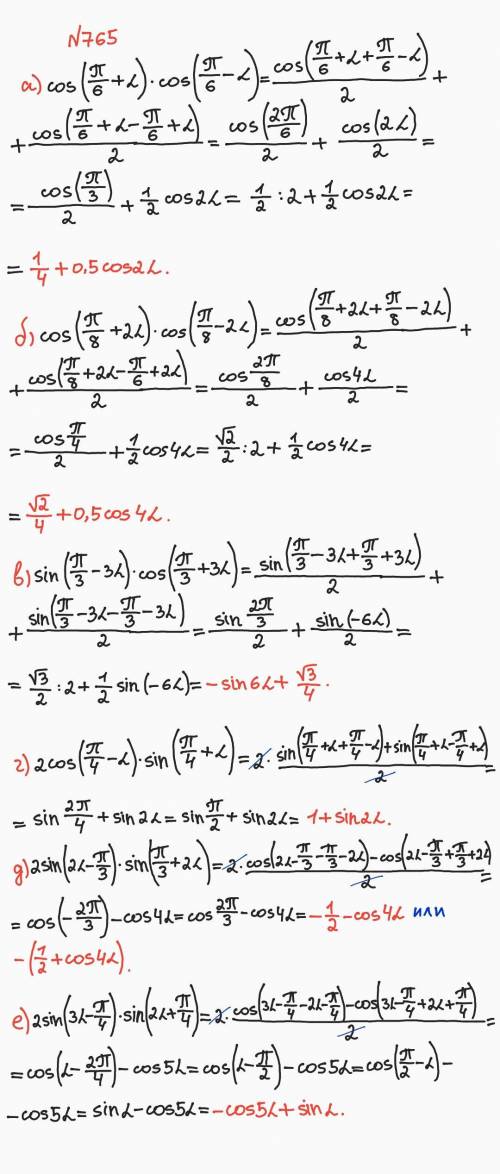 №765
а) cos(π/6+α)·cos(π/6-α)=cos(π/6+α+π/6-α)/2+
+cos(π/6+α-π/6+α)/2=cos(2π/6)/2+cos(2α)/2=
=cos(π/3)/2+1/2cos2α=1/2:2+1/2cos2α=
=1/4+0,5cos2α.
б) cos(π/8+2α)·cos(π/8-2α)=cos(π/8+2α+π/8-2α)/2+
+cos(π/8+2α-π/6+2α)/2=cos2π/8/2+cos4α/2=
=cosπ/4/2+1/2cos4α=√2/2:2+1/2cos4α=
=√2/4+0,5cos4α.
в) sin(π/3-3α)·cos(π/3+3α)=sin(π/3-3α+π/3+3α)/2+
+sin(π/3-3α-π/3-3α)/2=sin2π/3/2+sin(-6α)/2=
=√3/2:2+1/2sin(-6α)=-sin6α+√3/4.
г) 2cos(π/4-α)·sin(π/4+α)=2·sin(π/4+α+π/4-α)+sin(π/4+α-π/4+α)/2=
=sin2π/4+sin2α=sinπ/2+sin2α=1+sin2α.
д) 2sin(2α-π/3)·sin(π/3+2α)=2·cos(2α-π/3-π/3-2α)-cos(2α-π/3+π/3+2α)/2=
=cos(-2π/3)-cos4α=cos2π/3-cos4α=-1/2-cos4α или
-(1/2+cos4α).
е) 2sin(3α-π/4)·sin(2α+π/4)=2·cos(3α-π/4-2α-π/4)-cos(3α-π/4+2α+π/4)/2=
=cos(α-2π/4)-cos5α=cos(α-π/2)-cos5α=cos(π/2-α)-
-cos5α=sinα-cos5α=-cos5α+sinα.